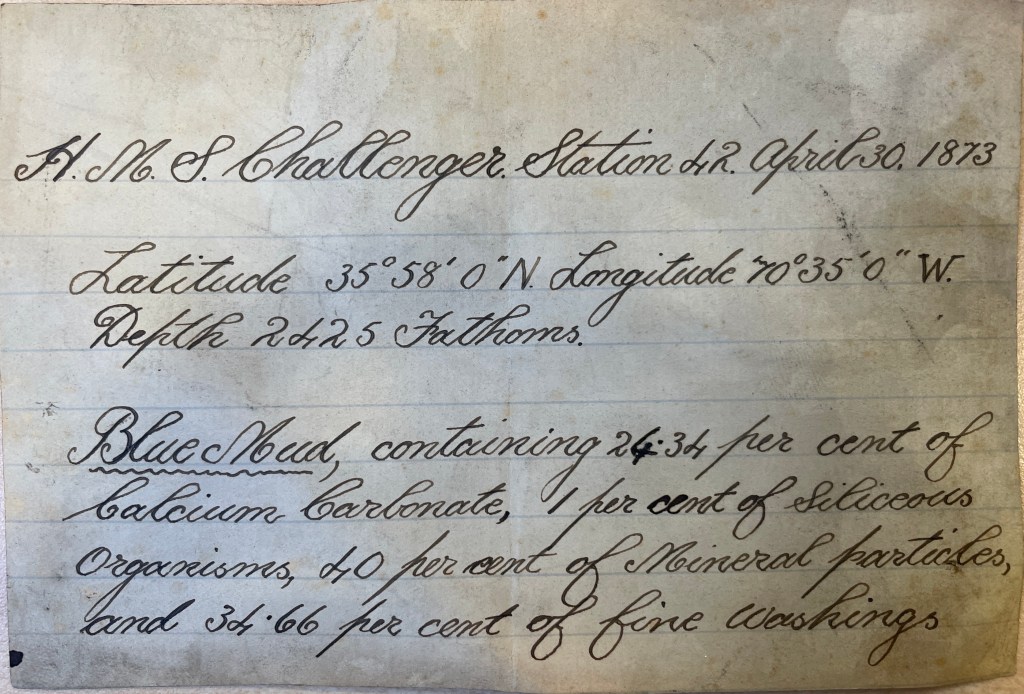 H. M. S. Challenger. Station 42. April 30. 1873
Latitude 35° 58' 0" N. Longitude 70° 35' 0" W.
Depth 2425 Fathoms.
Blue Mud, containing 24·34 per cent of
Calcium Carbonate, 1 per cent of Siliceous
Organisms, 40 per cent of Mineral particles,
and 34·66 per cent of fine washings